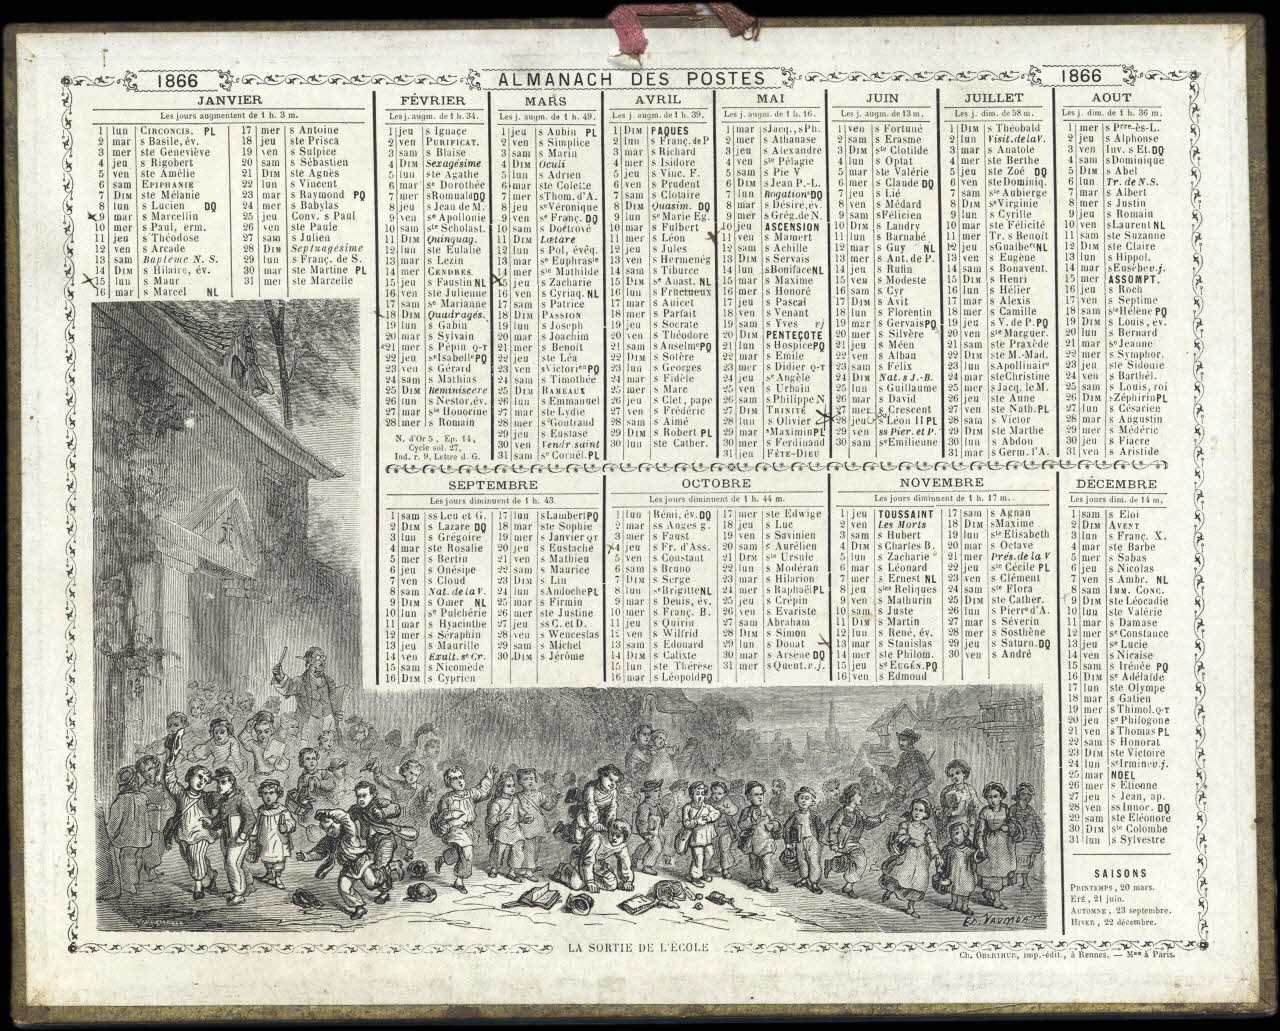 1866
ALMANACH DES POSTES
1866
JANVIER
Les jours augmentent de 1 h. 3 m.
1 lun CIRCONCIS. PL
2 mar s Basile, év.
3 mer ste Geneviève
4 jeu s Rigobert
5 ven ste Amélie
6 sam EPIPHANIE
7 DIM ste Mélanie
8 lun s Lucien DQ
9 mar s Marcellin
10 mer s Paul, erm.
11 jeu s Théodose
12 ven s Arcade
13 sam Baptême N. S.
14 DIM s Hilaire, év.
15 lun s Maur
16 mar s Marcel NL
17 mer s Antoine
18 jeu ste Prisca
19 ven s Sulpice
20 sam s Sébastien
21 DIM ste Agnès
22 lun s Vincent
23 mar s Raymond PQ
24 mer s Babylas
25 jeu Conv. s Paul
26 ven ste Paule
27 sam s Julien
28 DIM Septuagésime
29 lun s Franç. de S.
30 mar ste Martine PL
31 mer ste Marcelle
FÉVRIER
Les j. augm. de 1 h. 34.
1 jeu s Ignace
2 ven PURIFICAT.
3 sam s Blaise
4 DIM Sexagésime
5 lun ste Agathe
6 mar se Dorothée
7 mer s Romuald DQ
8 jeu s Jean de M.
9 ven se Apollonie
10 sam ste Scholast.
11 DIM Quinquag.
12 lun ste Eulalie
13 mar s Lezin
14 mer CENDRES
15 jeu s Faustin NL
16 ven ste Julienne
17 sam s Marianne
18 DIM Quadragés.
19 lun s Gabin
20 mar s Sylvain
21 mer s Pépin Q-T
22 jeu se Isabelle PQ
23 ven s Gérard
24 sam s Mathias
25 DIM Reminiscere
26 lun s Nestor, év.
27 mar ste Honorine
28 mer s Romain
N. d'Or 5, Ep. 14,
Cycle sol. 27,
Ind. r. 9, Lettre d. G.
MARS
Les j. augm. de 1 h. 49.
1 jeu s Aubin PL
2 ven s Simplice
3 sam s Marin
4 DIM Oculi
5 lun s Adrien
6 mar ste Colette
7 mer s Thom. d'A.
8 jeu se Véronique
9 ven se Franç. DQ
10 sam s Doctrové
11 DIM Lætare
12 lun s Pol, évêq.
13 mar se Euphrase
14 mer ste Mathilde
15 jeu s Zacharie
16 ven s Cyriaq. NL
17 sam s Patrice
18 DIM PASSION
19 lun s Joseph
20 mar s Joachim
21 mer s Benoit
22 jeu ste Léa
23 ven s Victorien PQ
24 sam s Timothée
25 DIM RAMEAUX
26 lun s Emmanuel
27 mar ste Lydie
28 mer s Gontrand
29 jeu s Eustase
30 ven Vendr. saint
31 sam se Cornél. PL
AVRIL
Les j. augm. de 1 h. 39.
1 DIM PAQUES
2 lun s Franç. de P
3 mar s Richard
4 mer s Isidore
5 jeu s Vinc. F.
6 ven s Prudent
7 sam s Clotaire
8 DIM Quasim. DQ
9 lun se Marie Eg.
10 mar s Fulbert
11 mer s Léon
12 jeu s Jules
13 ven s Hermenég
14 sam s Tiburce
15 DIM se Anast. NL
16 lun s Fructueux
17 mar s Anicet
18 mer s Parfait
19 jeu s Socrate
20 ven s Théodore
21 sam s Anselme PQ
22 DIM s Sotère
23 lun s Georges
24 mar s Fidèle
25 mer s Marc
26 jeu s Clet, pape
27 ven s Frédéric
28 sam s Aimé
29 DIM s Robert PL
30 lun ste Cather.
MAI
Les j. augm. de 1 h. 16.
1 mar s Jacq., s Ph.
2 mer s Athanase
3 jeu s Alexandre
4 ven ste Pélagie
5 sam s Pie V
6 DIM s Jean P.-L.
7 lun Rogations DQ
8 mar s Désiré, év.
9 mer s Grég. de N.
10 jeu ASCENSION
11 ven s Mamert
12 sam s Achille
13 DIM s Servais
14 lun s Boniface NL
15 mar s Maxime
16 mer s Honoré
17 jeu s Pascal
18 ven s Venant
19 sam s Yves vj
20 DIM PENTECÔTE
21 lun s Hospice PQ
22 mar s Emile
23 mer s Didier Q-T
24 jeu se Angèle
25 ven s Urbain
26 sam s Philippe N
27 DIM TRINITÉ
28 lun s Olivier
29 mar s Maximin PL
30 mer s Ferdinand
31 jeu FÊTE-DIEU
JUIN
Les j. augm. de 13 m.
1 ven s Fortuné
2 sam s Erasme
3 DIM ste Clotilde
4 lun s Optat
5 mar ste Valérie
6 mer s Claude DQ
7 jeu s Lié
8 ven s Médard
9 sam s Félicien
10 DIM s Landry
11 lun s Barnabé
12 mar s Guy NL
13 mer s Ant. de P.
14 jeu s Rufin
15 ven s Modeste
16 sam s Cyr
17 DIM s Avit
18 lun s Florentin
19 mar s Gervais PQ
20 mer s Silvère
21 jeu s Méen
22 ven s Alban
23 sam s Félix
24 DIM Nat. s J.-B.
25 lun s Guillaume
26 mar s David
27 mer s Crescent
28 jeu s Léon II PL
29 ven ss Pier. et P.
30 sam se Emilienne
JUILLET
Les j. dim. de 58 m.
1 DIM s Théobald
2 lun Visit. de la V.
3 mar s Anatole
4 mer ste Berthe
5 jeu ste Zoé DQ
6 ven ste Dominiq.
7 sam ste Aubierge
8 DIM se Virginie
9 lun s Cyrille
10 mar ste Félicité
11 mer Tr. s Benoît
12 jeu s Gualbert NL
13 ven s Eugène
14 sam s Bonavent.
15 DIM s Henri
16 lun s Hélier
17 mar s Alexis
18 mer s Camille
19 jeu s V. de P. PQ
20 ven ste Marguer.
21 sam ste Praxède
22 DIM ste M.-Mad.
23 lun s Apollinaire
24 mar ste Christine
25 mer s Jacq. le M.
26 jeu ste Anne
27 ven ste Nath. PL
28 sam s Victor
29 DIM ste Marthe
30 lun s Abdon
31 mar s Germ. l'A.
AOUT
Les j. dim. de 1 h. 36.
1 mer s Pierre-ès-L.
2 jeu s Alphonse
3 ven Inv. s Et. DQ
4 sam s Dominique
5 DIM s Abel
6 lun Tr. de N. S.
7 mar s Albert
8 mer s Justin
9 jeu s Romain
10 ven s Laurent NL
11 sam ste Suzanne
12 DIM ste Claire
13 lun s Hippol.
14 mar s Eusèbe v. j.
15 mer ASSOMPT.
16 jeu s Roch
17 ven s Septime
18 sam ste Hélène PQ
19 DIM s Louis, év.
20 lun s Bernard
21 mar se Jeanne
22 mer s Symphor.
23 jeu ste Sidonie
24 ven s Barthél.
25 sam s Louis, roi
26 DIM s Zéphirin PL
27 lun s Césarien
28 mar s Augustin
29 mer s Médéric
30 jeu s Fiacre
31 ven s Aristide
SEPTEMBRE
Les jours diminuent de 1 h. 43.
1 sam s Leu et G.
2 DIM s Lazare DQ
3 lun s Grégoire
4 mar ste Rosalie
5 mer s Bertin
6 jeu s Onésipe
7 ven s Cloud
8 sam Nat. de la V.
9 DIM s Omer NL
10 lun se Pulchérie
11 mar s Hyacinthe
12 mer s Séraphin
13 jeu s Maurille
14 ven Exalt. se Cr.
15 sam s Nicomède
16 DIM s Cyprien
17 lun s Lambert PQ
18 mar ste Sophie
19 mer s Janvier QT
20 jeu s Eustache
21 ven s Mathieu
22 sam s Maurice
23 DIM s Lin
24 lun s Andoche PL
25 mar s Firmin
26 mer ste Justine
27 jeu ss C. et D.
28 ven s Wenceslas
29 sam s Michel
30 DIM s Jérôme
OCTOBRE
Les jours diminuent de 1 h. 44 m.
1 lun Rémi, év. DQ
2 mar ss Anges g.
3 mer s Faust
4 jeu s Fr. d'Ass.
5 ven s Constant
6 sam s Bruno
7 DIM s Serge
8 lun se Brigitte NL
9 mar s Denis, év.
10 mer s Franç. B.
11 jeu s Quirin
12 ven s Wilfrid
13 sam s Edouard
14 DIM s Calixte
15 lun ste Thérèse
16 mar s Léopold PQ
17 mer ste Edwige
18 jeu s Luc
19 ven s Savinien
20 sam s Aurélien
21 DIM ste Ursule
22 lun s Modéran
23 mar s Hilarion
24 mer s Raphaël PL
25 jeu s Crépin
26 ven s Evariste
27 sam Abraham
28 DIM s Simon
29 lun s Donat
30 mar s Arsène DQ
31 mer s Quent. v. j.
NOVEMBRE
Les jours diminuent de 1 h. 17 m.
1 jeu TOUSSAINT
2 ven Les Morts
3 sam s Hubert
4 DIM s Charles B.
5 lun s Zacharie
6 mar s Léonard
7 mer s Ernest NL
8 jeu stes Reliques
9 ven s Mathurin
10 sam s Juste
11 DIM s Martin
12 lun s René, év.
13 mar s Stanislas
14 mer ste Philom.
15 jeu se EUGÉN. PQ
16 ven s Edmond
17 sam s Agnan
18 DIM s Maxime
19 lun ste Elisabeth
20 mar s Octave
21 mer Prés. de la V
22 jeu ste Cécile PL
23 ven s Clément
24 sam ste Flora
25 DIM ste Cather.
26 lun s Pierre d'A.
27 mar s Séverin
28 mer s Sosthène
29 jeu s Saturn. DQ
30 ven s André
DÉCEMBRE
Les jours dim. de 14 m.
1 sam s Eloi
2 DIM AVENT
3 lun s Franç. X.
4 mar ste Barbe
5 mer s Sabas
6 jeu s Nicolas
7 ven s Ambr. NL
8 sam IMM. CONC.
9 DIM ste Léocadie
10 lun ste Valérie
11 mar s Damase
12 mer se Constance
13 jeu se Lucie
14 ven s Nicaise
15 sam s Irénée PQ
16 DIM se Adélaïde
17 lun ste Olympe
18 mar s Gatien
19 mer s Thimol. Q-T
20 jeu se Philogone
21 ven s Thomas PL
22 sam s Honorat
23 DIM ste Victoire
24 lun se Irmine v. j.
25 mar NOEL
26 mer s Etienne
27 jeu s Jean, ap.
28 ven ss Innoc. DQ
29 sam ste Eléonore
30 DIM ste Colombe
31 lun s Sylvestre
SAISONS
PRINTEMPS, 20 mars.
ETÉ, 21 juin.
AUTOMNE, 23 septembre.
HIVER, 22 décembre.
LA SORTIE DE L'ÉCOLE
Ch. OBERTHUR, imp.-édit., à Rennes. — Mon à Paris.